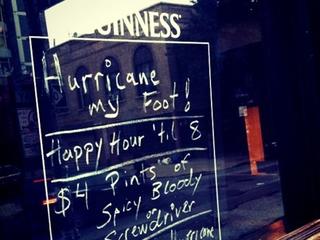 GUINNESS
Hurricane
my Foot!
Happy Hour 'til 8
$4 Pints of
Spicy Bloody
or
Screwdriver
Hurricane